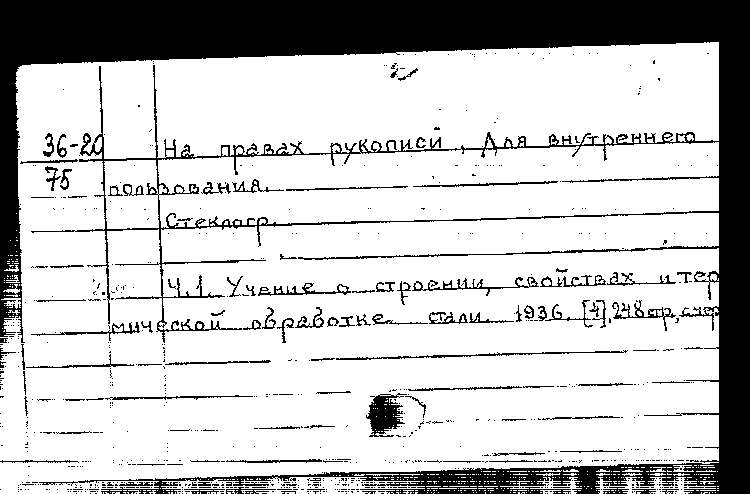 2
36-20 На правах рукописи, Для внутреннего
75 пользования.
Стеклогр.
Ч.1. Учение о строении, свойствах и тер
мической обработке стали. 1936. [4], 248 стр, с чер